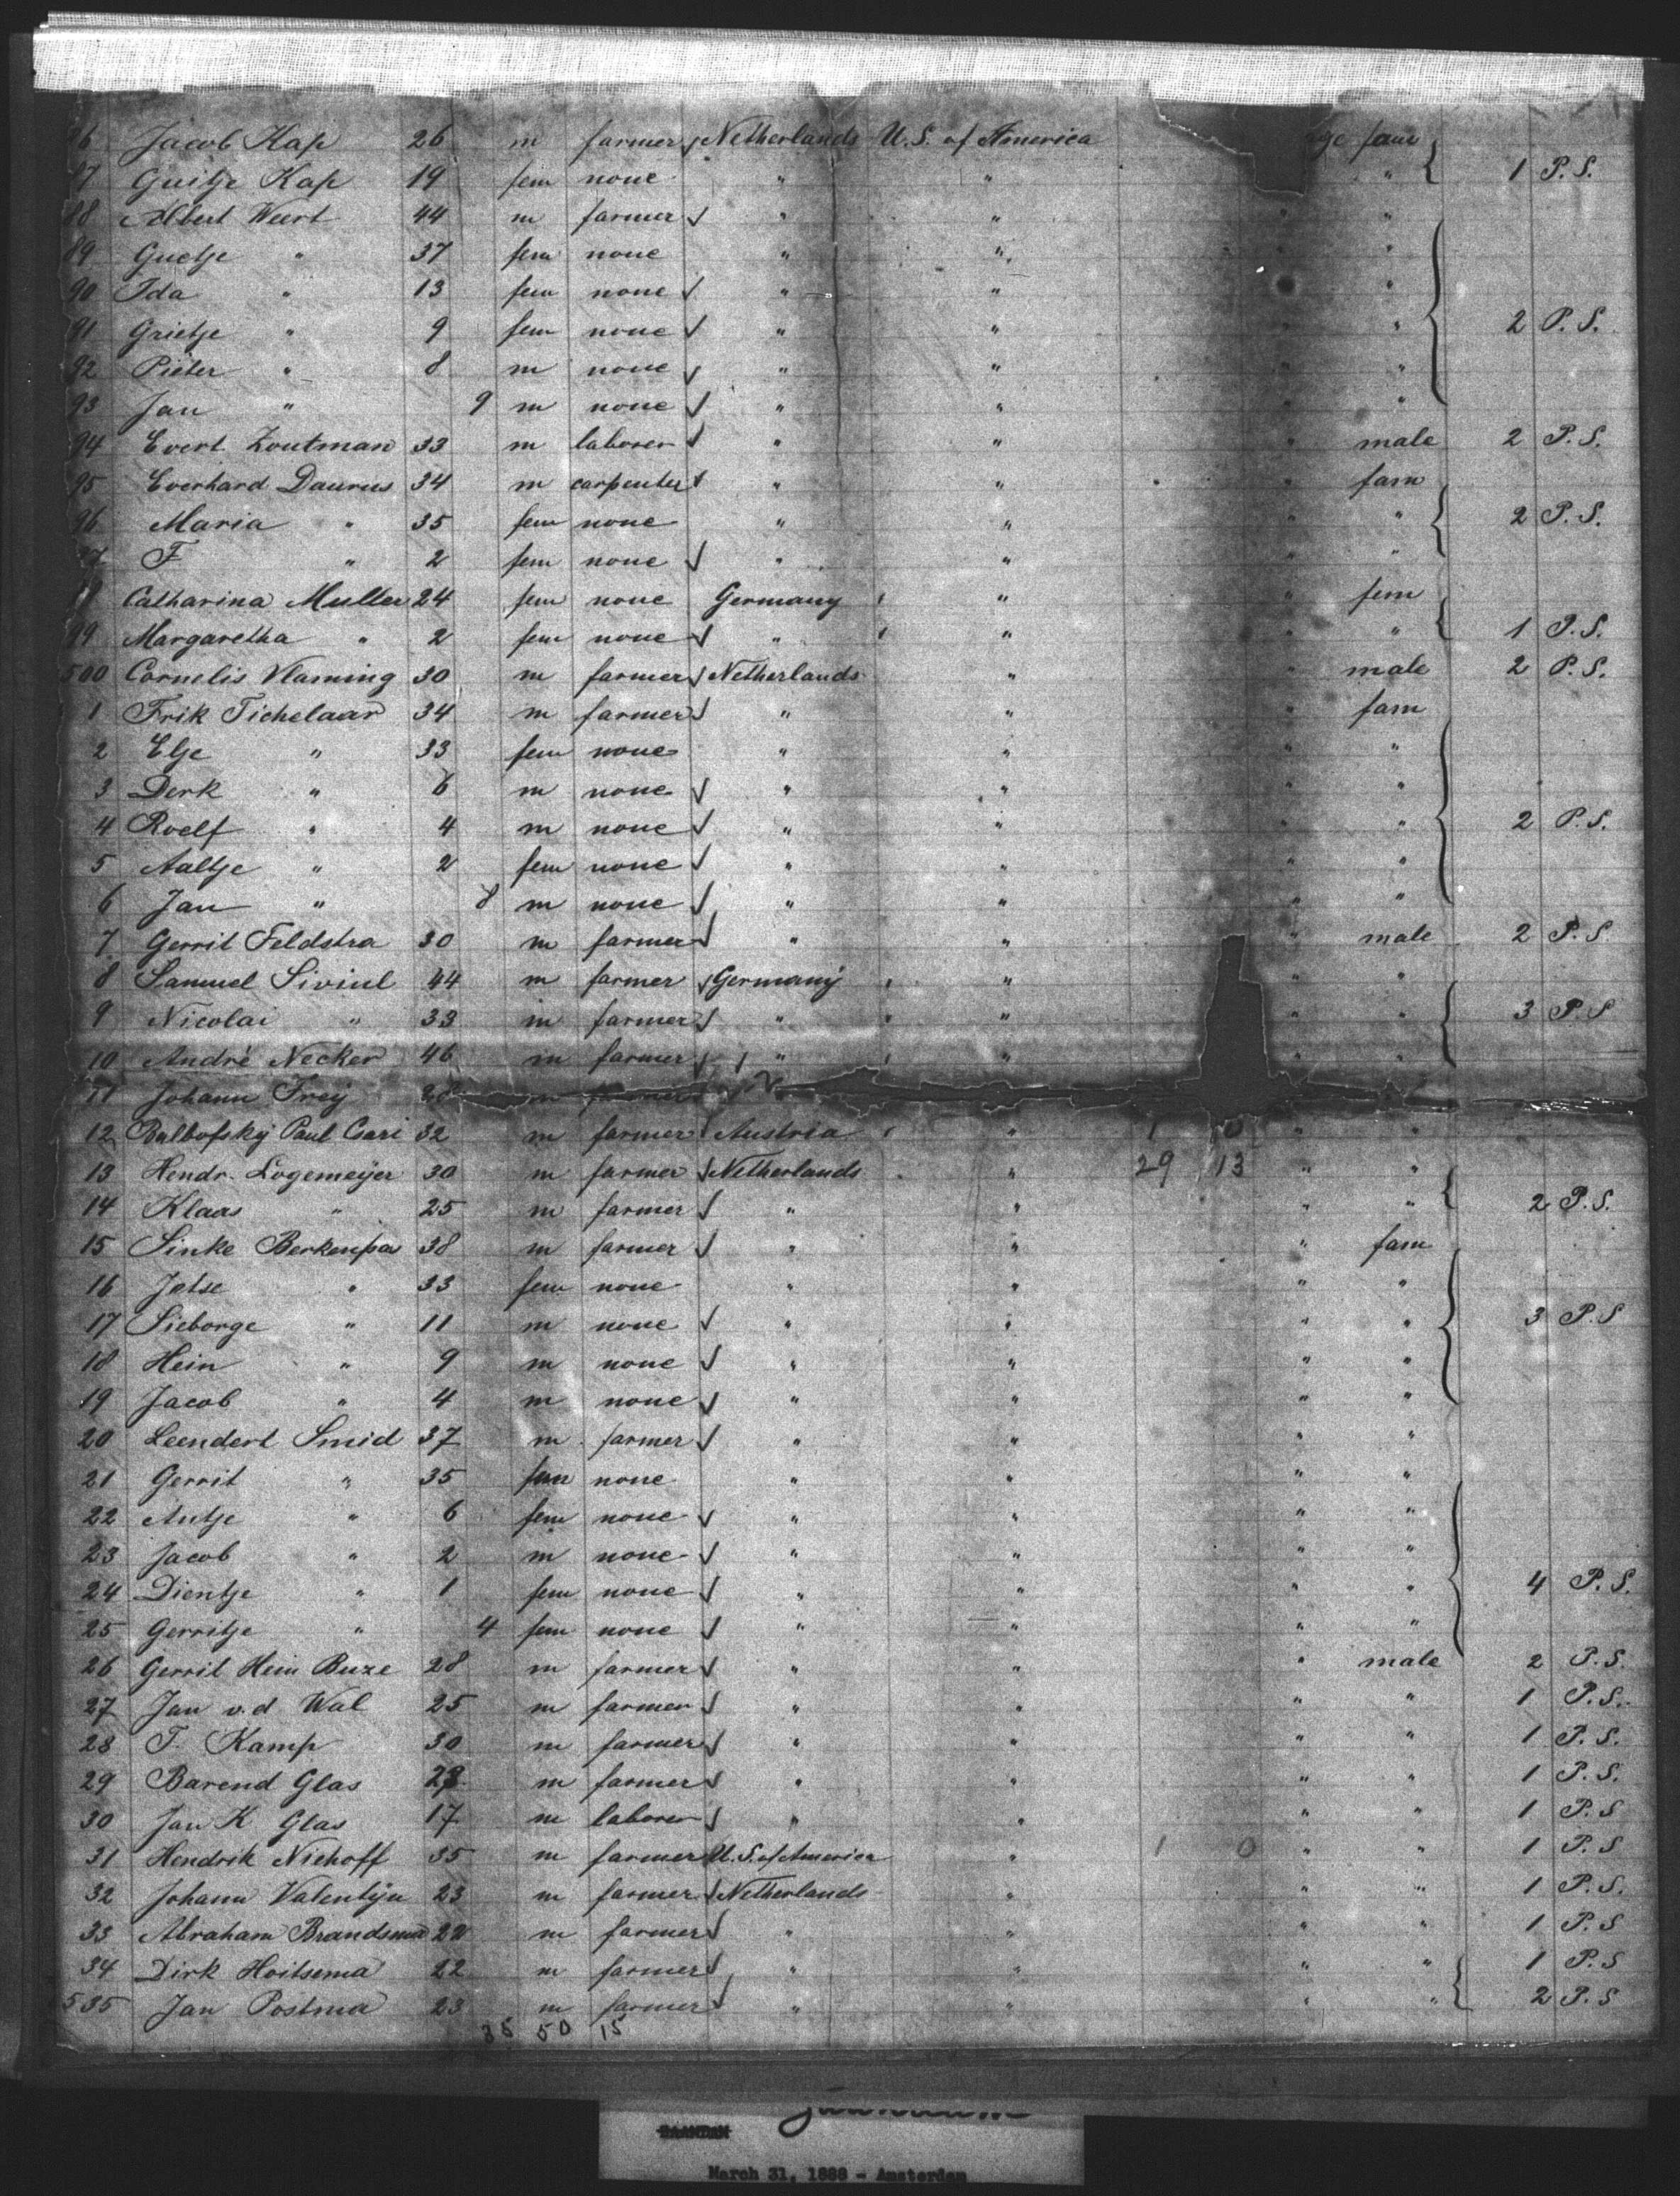 86 Jacob Kap 26 m farmer Netherlands U.S. of America fam
87 Guitje Kap 19 fem none " " " 1 P.S.
88 Albert Weert 44 m farmer " " " "
89 Guetje " 37 fem none " " "
90 Ida " 13 fem none " " "
91 Grietje " 9 fem none " " " " 2 P.S.
92 Pieter " 8 m none " " " "
93 Jan " 9 m none " " " "
94 Evert Zoutman 33 m laborer " " " male 2 P.S.
95 Everhard Daurus 34 m carpenter " " " fam
96 Maria " 35 fem none " " " " 2 P.S.
97 F " 2 fem none " " " "
Catharina Muller 24 fem none Germany " " fem
99 Margaretha " 2 fem none " " " " 1 P.S.
500 Cornelis Vlaming 30 m farmer Netherlands " " male 2 P.S.
1 Frik Tichelaar 34 m farmer " " " fam
2 Elje " 33 fem none " " " "
3 Derk " 6 m none " " " "
4 Roelf " 4 m none " " " " 2 P.S.
5 Aaltje " 2 fem none " " " "
6 Jan " 8 m none " " " "
7 Gerrit Feldstra 30 m farmer " " " male 2 P.S
8 Samuel Siviul 44 m farmer Germany " " "
9 Nicolai " 33 m farmer " " " " 3 P.S
10 André Necker 46 m farmer " " " "
11 Johann Frey 28 m farmer
12 Balbofsky Paul Csari 32 m farmer Austria " 1 0 " "
13 Hendr. Logemeijer 30 m farmer Netherlands " 29 13 " "
14 Klaas " 25 m farmer " " " " 2 P.S.
15 Sinke Berkenpa 38 m farmer " " " fam
16 Jetse " 33 fem none " " " "
17 Sieborge " 11 m none " " " " 3 P.S
18 Hein " 9 m none " " " "
19 Jacob " 4 m none " " " "
20 Leendert Smid 37 m farmer " " " "
21 Gerrit " 35 fem none " " " "
22 Antje " 6 fem none " " " "
23 Jacob " 2 m none " " " "
24 Dientje " 1 fem none " " " " 4 P.S.
25 Gerritje " 4 fem none " " " "
26 Gerrit Hein Buze 28 m farmer " " " male 2 P.S.
27 Jan v.d Wal 25 m farmer " " " " 1 P.S.
28 T. Kamp 30 m farmer " " " " 1 P.S.
29 Barend Glas m farmer " " " " 1 P.S.
30 Jan K Glas 17 m laborer " " " " 1 P.S
31 Hendrik Niehoff 35 m farmer U.S. of America " 1 0 " " 1 P.S
32 Johann Valentijn 23 m farmer Netherlands " " " 1 P.S.
33 Abraham Brandsma 22 m farmer " " " " 1 P.S
34 Dirk Hoitsema 22 m farmer " " " " 1 P.S
535 Jan Postma 23 m farmer " " " " 2 P.S
35 50 15
ZAANDAM
March 31, 1888 - Amsterdam